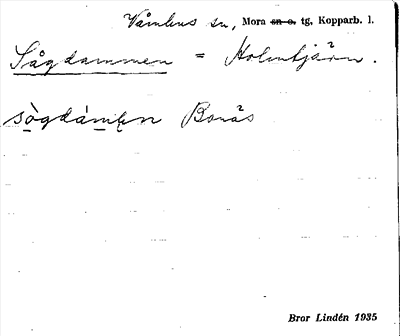 Våmhus sn, Mora sn o. tg, Kopparb. l.
Sågdammen = Holmtjärn.
sògdámen Bonäs
Bror Lindén 1935